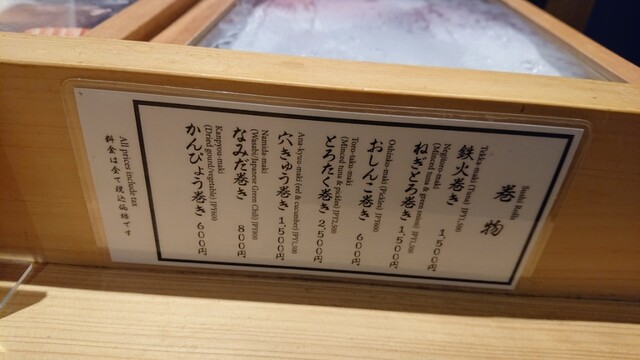 Sushi Rolls
巻物
Tekka-maki (Tuna) JPY1,500
鉄火巻き 1,500円
Negitoro-maki
(Minced tuna & green onion) JPY1,500
ねぎとろ巻き 1,500円
Oshinko-maki (Pickles) JPY600
おしんこ巻き 600円
Toro-taku-maki
(Minced tuna & pickles) JPY2,500
とろたく巻き 2,500円
Ana-kyuu-maki (eel & cucumber) JPY1,500
穴きゅう巻き 1,500円
Namida-maki
(Wasabi/Japanese Green Chili) JPY800
なみだ巻き 800円
Kanpyou-maki
(Dried gourd/vegetable) JPY600
かんぴょう巻き 600円
All prices include tax
料金は全て税込価格です